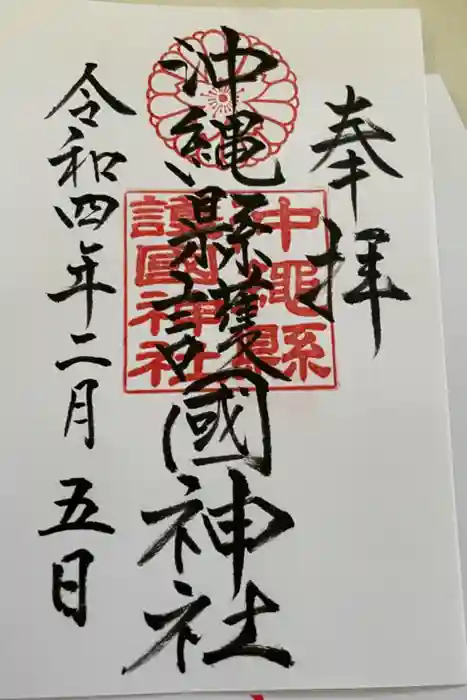 奉拝
沖縄縣護國神社
沖縄縣
護國神社
令和四年二月五日